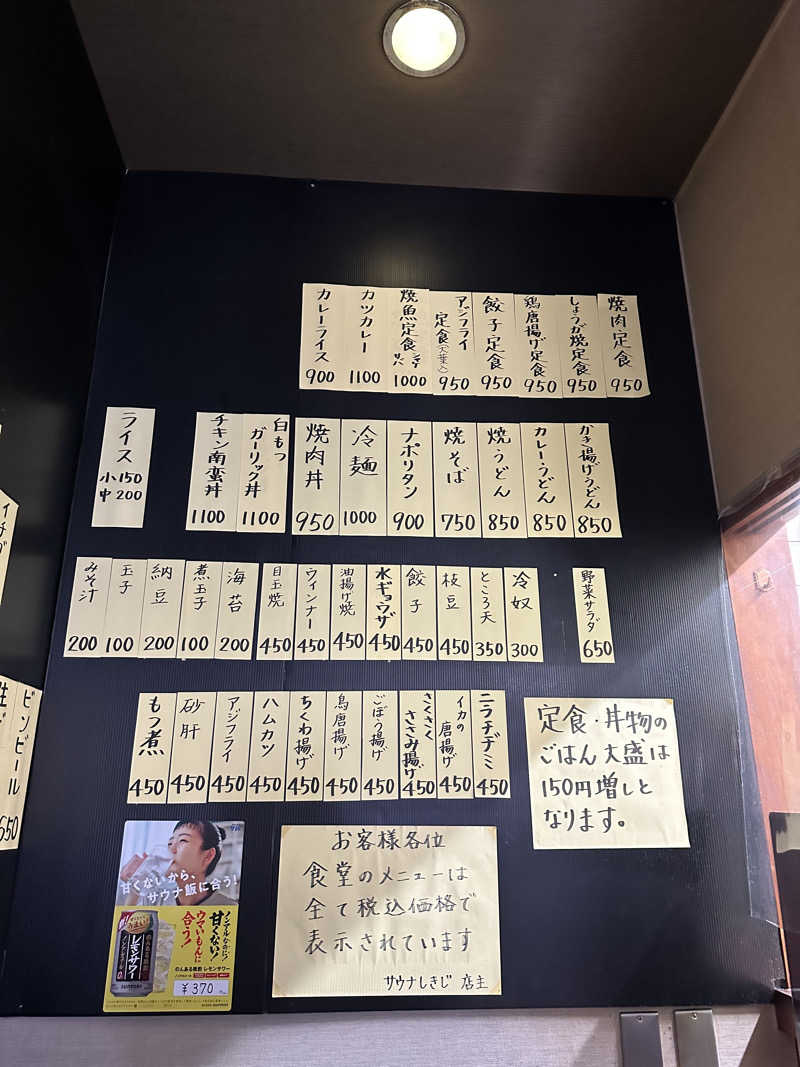 焼肉定食 950
しょうが焼定食 950
鶏唐揚げ定食 950
餃子定食 950
アジフライ定食(大葉入) 950
焼魚定食 シャケ サバ 1000
カツカレー 1100
カレーライス 900
かき揚げうどん 850
カレーうどん 850
焼うどん 850
焼そば 750
ナポリタン 900
冷麺 1000
焼肉丼 950
白もつガーリック丼 1100
チキン南蛮丼 1100
ライス 小150 中200
野菜サラダ 650
冷奴 300
ところ天 350
枝豆 450
餃子 450
水ギョウザ 450
油揚げ焼 450
ウィンナー 450
目玉焼 450
海苔 200
煮玉子 100
納豆 200
玉子 100
みそ汁 200
ニラチヂミ 450
イカの唐揚げ 450
さくさくささみ揚げ 450
ごぼう揚げ 450
鳥唐揚げ 450
ちくわ揚げ 450
ハムカツ 450
アジフライ 450
砂肝 450
もつ煮 450
定食・丼物の
ごはん大盛は
150円増しと
なります。
お客様各位
食堂のメニューは
全て税込価格で
表示されています
サウナしきじ 店主
甘くないから、
サウナ飯に合う!
ノンアルなのに!
甘くない!
ウマいもんに
合う!
レモンサワー
のんある晩酌 レモンサワー
¥370
ビンビール
650
生ビ
イチゴ